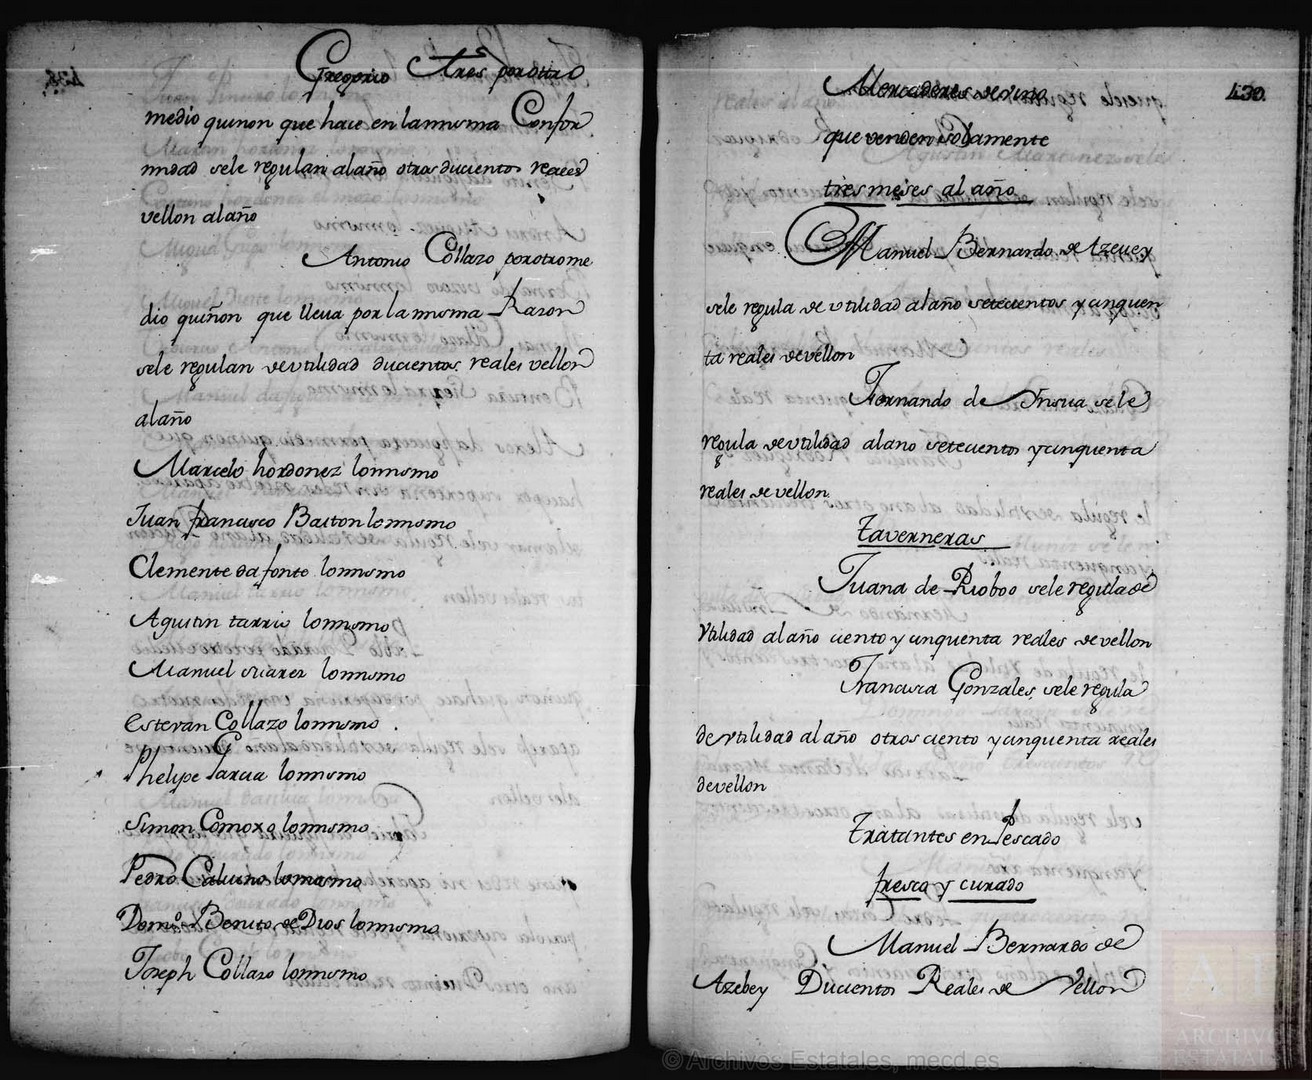 Gregorio Ares porottro
medio quiñon que haie en lamisma Confor
midad sele regulan alaño otros ducientos reales
vellon alaño
Antonio Collazo porotrome
dio quiñon que lleua por la misma Razon
sele regulan deutilidad ducientos reales vellon
alaño
Marcelo hordonez lomismo
Juan francisco Baston lomismo
Clemente dafonte lomismo
Agustin tarrio lomismo
Manuel suarez lomismo
Estevan Collazo lomismo
Phelipe Garcia lomismo
Simon Comoxo lomismo
Pedro Caluiño lomismo
Domo. Benito de Dios lomismo
Joseph Collazo lomismo
430.
Mercaderes de vino
que venden solamente
tres meses al año
Manuel Bernardo de Azeuey
sele regula de vtilidad alaño setecientos y cinquen
ta reales devellon
Fernando de Insua sele
regula devtilidad alano setecientos ycinquenta
reales devellon
taverneras
Juana de Rioboo sele regula de
Vtilidad alaño ciento y cinquenta reales devellon
Francisca Gonzales sele regula
devtilidad alaño otros ciento ycinquenta reales
devellon
tratantes en Pescado
fresco y curado
Manuel Bernardo de
Azebey Ducientos Reales de Vellon
© Archivos Estatales, mecd.es
ARCHIVOS
ESTATALES